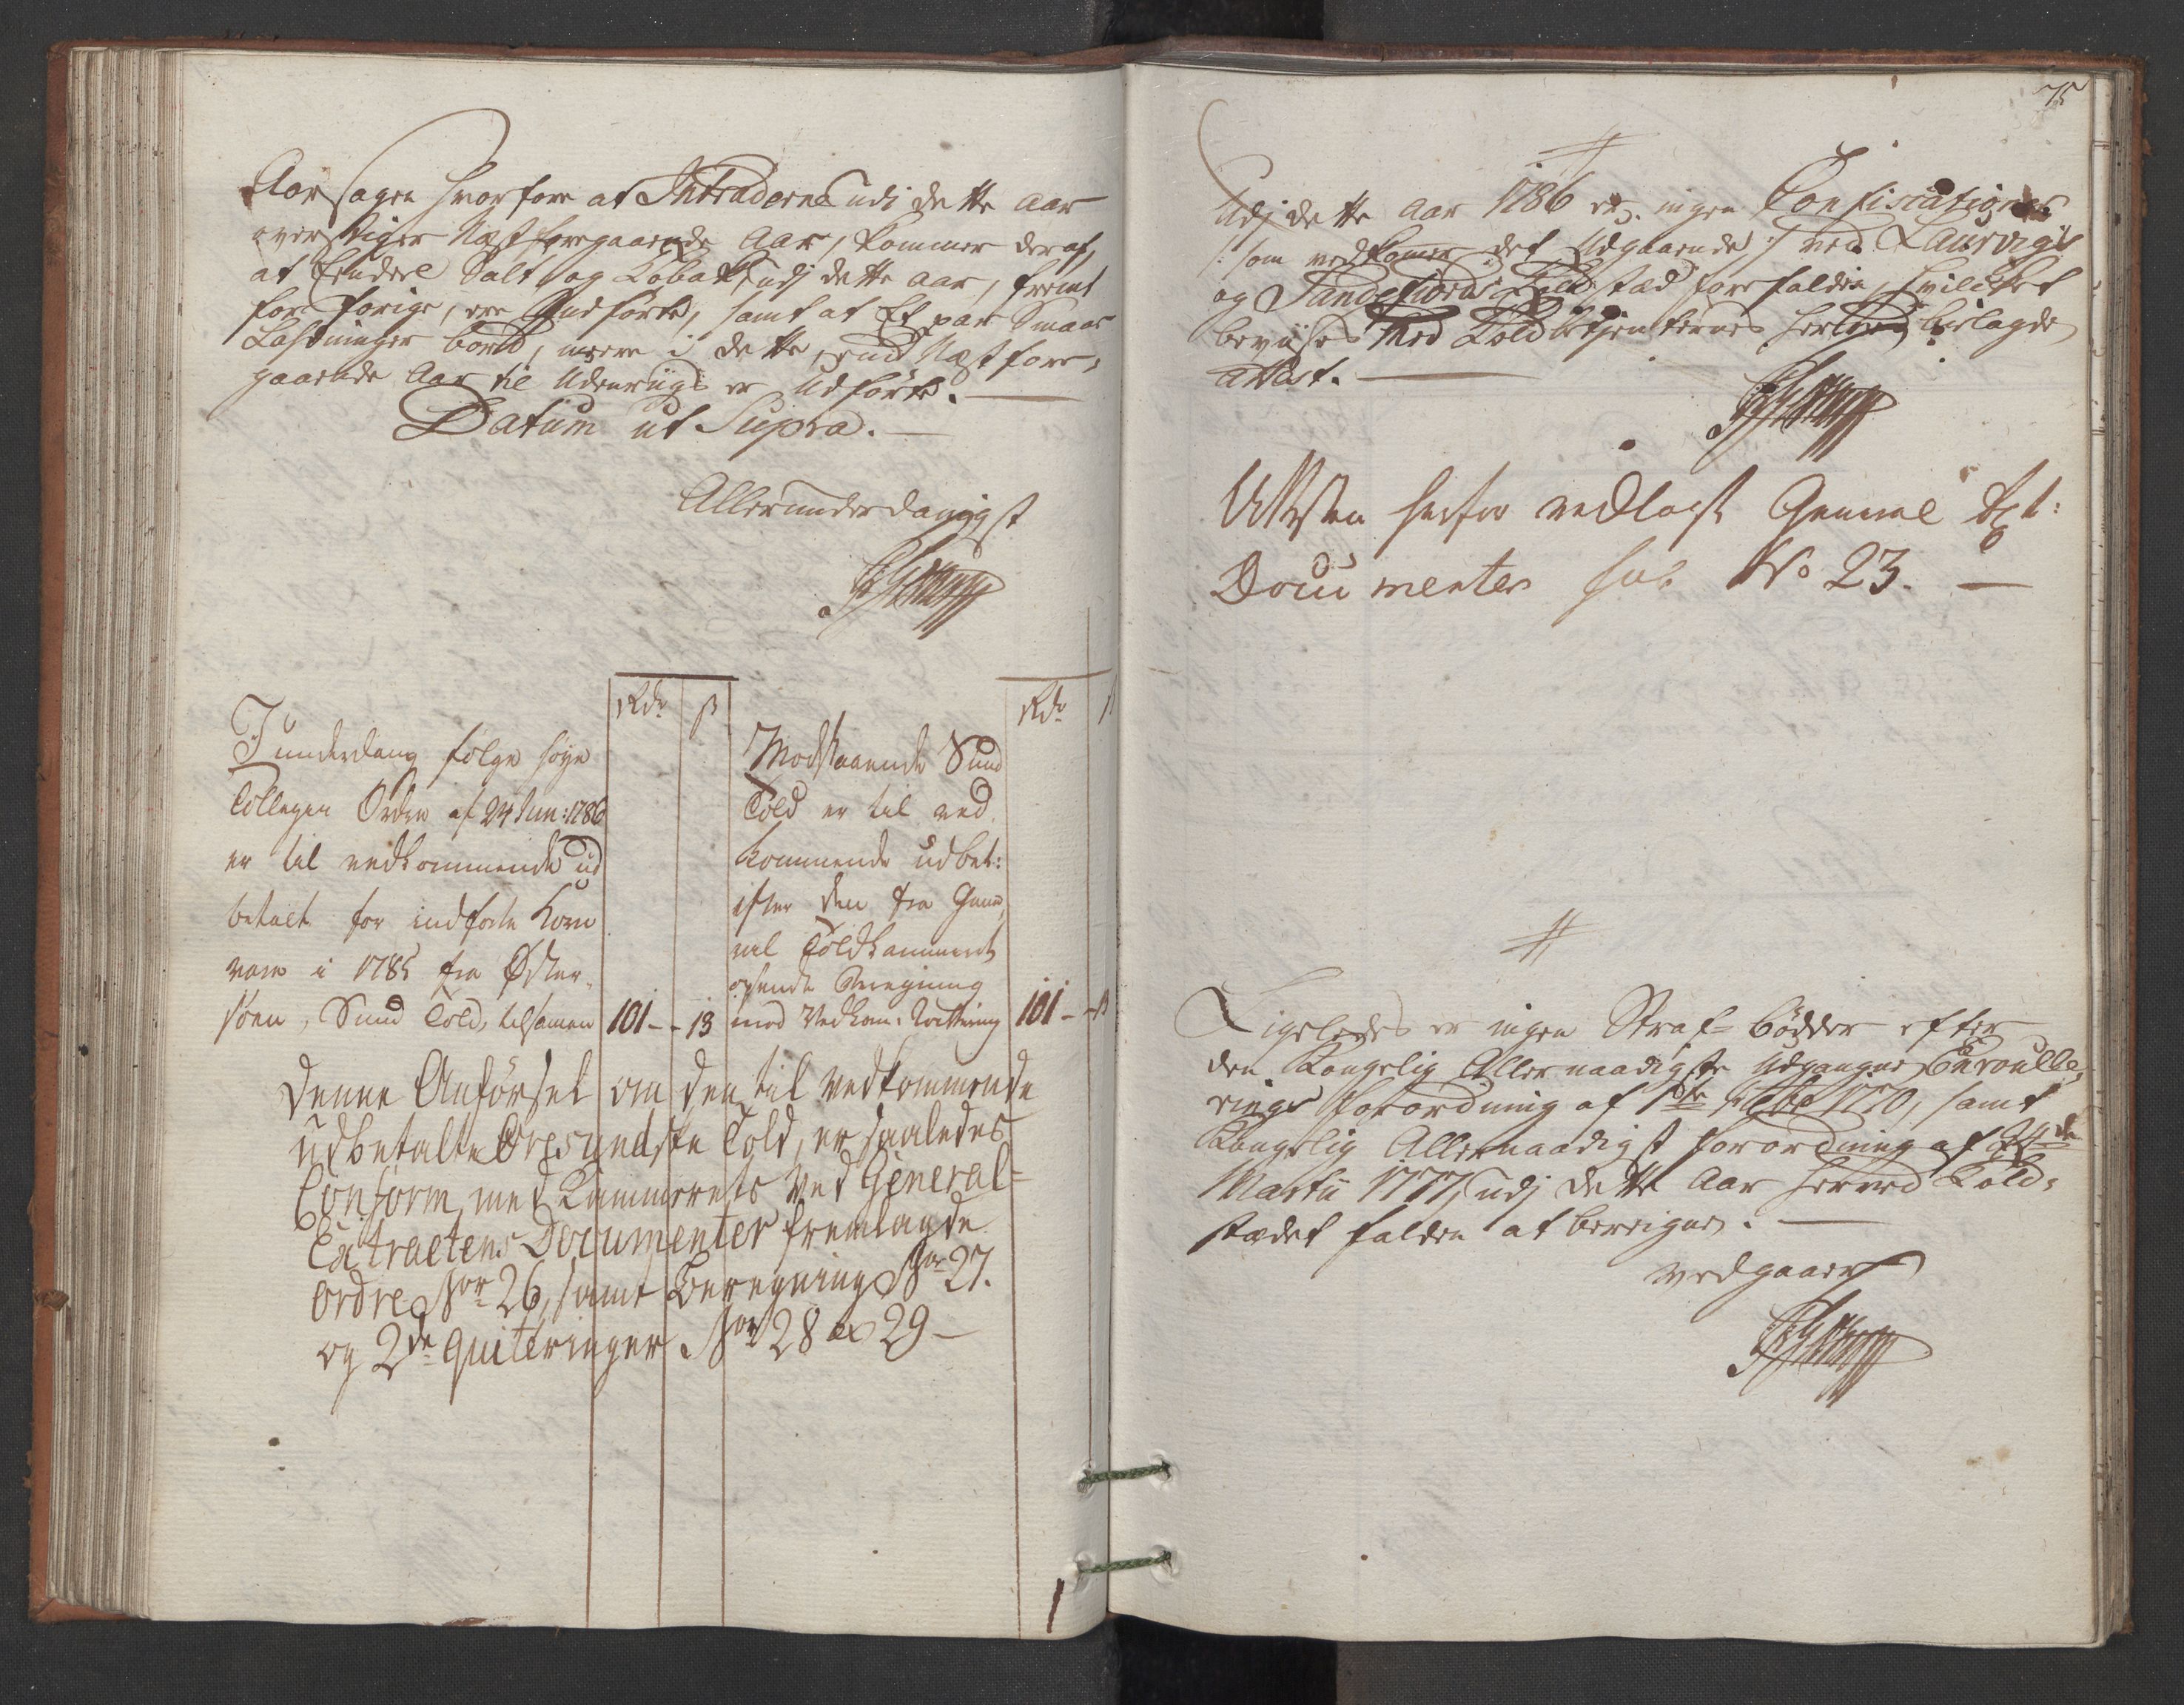 Aarsagen hvorfore at Intraderne udi dette Aar
overstiger Næstforegaaende Aar, kommer deraf,
at Eendeel Salt og Tobak udj dette Aar, fremt
for forige, ere Indførte, samt at Et par Smaae
Ladninger bord, meere i dette, end Næstfore-
gaaende Aar til Udenriigs er Udførte.
Datum ut Supra.
Allerunderdanigst
Rdr ß
I underdanig følge høye
Collegen Ordre af 24 Jun: 1786
er til vedkommende ud
betalt for indførte Korn
vare i 1785 fra Øster-
søen, Sund Told, tilsamen 101 - 13
Rdr ß
Modstaaende Sund
Told er til ved
kommende udbet:
efter den fra Gene,
ral Toldkammeret
Beregning
mod Vedkom: Qvittering 101 -
Denne Anførsel om den til vedkommende
udbetalte Øresundske Told, er saaledes
Conform med Kammerets ved General-
Extractens Documenter fremlagde
Ordre Nor 26, samt Beregning Nor 27.
og 2de quiteringer Nor 28 & 29 -
75
Udj dette Aar 1786 er ingen Confiscationer
/: som vedkommer det Udgaaende :/ ved Laurvigs
og Sandefiords Toldstæd forefalden, hvilcket
beviises med Toldbetienternes herved bielagde
Attest.
Attesten herfor vedlagt General Ext:
Documenter sub No 23.
Ligeledes er ingen Straf-bødder efter
den Kongelig Allernaadigste Udgangne Enroulle-
rings Forordning af 1ste 1770, samt
Kongelig Allernaadigst Forordning af 24de
Martii 1777, udj dette Aar herved Told-
stædet falden at beregne.
vedgaaer